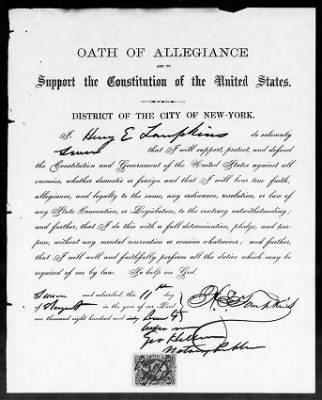 OATH OF ALLEGIANCE
AND TO
Support the Constitution of the United States.
DISTRICT OF THE CITY OF NEW-YORK.
I, Henry E Tompkins do solemnly
Swear that I will support, protect, and defend
the Constitution and Government of the United States against all
enemies, whether domestic or foreign and that I will bear true faith,
allegiance, and loyalty to the same, any ordinance, resolution, or law of
any State Convention, or Legislature, to the contrary notwithstanding;
and further, that I do this with a full determination, pledge, and pur-
pose, without any mental reservation or evasion whatsoever; and further,
that I will well and faithfully perform all the duties which may be
required of me by law. So help me God.
Sworn and subscribed, this 11th day
of August in the year of our Lord
one thousand eight hundred and
H E Tompkins
before me
Geo
Notary Public